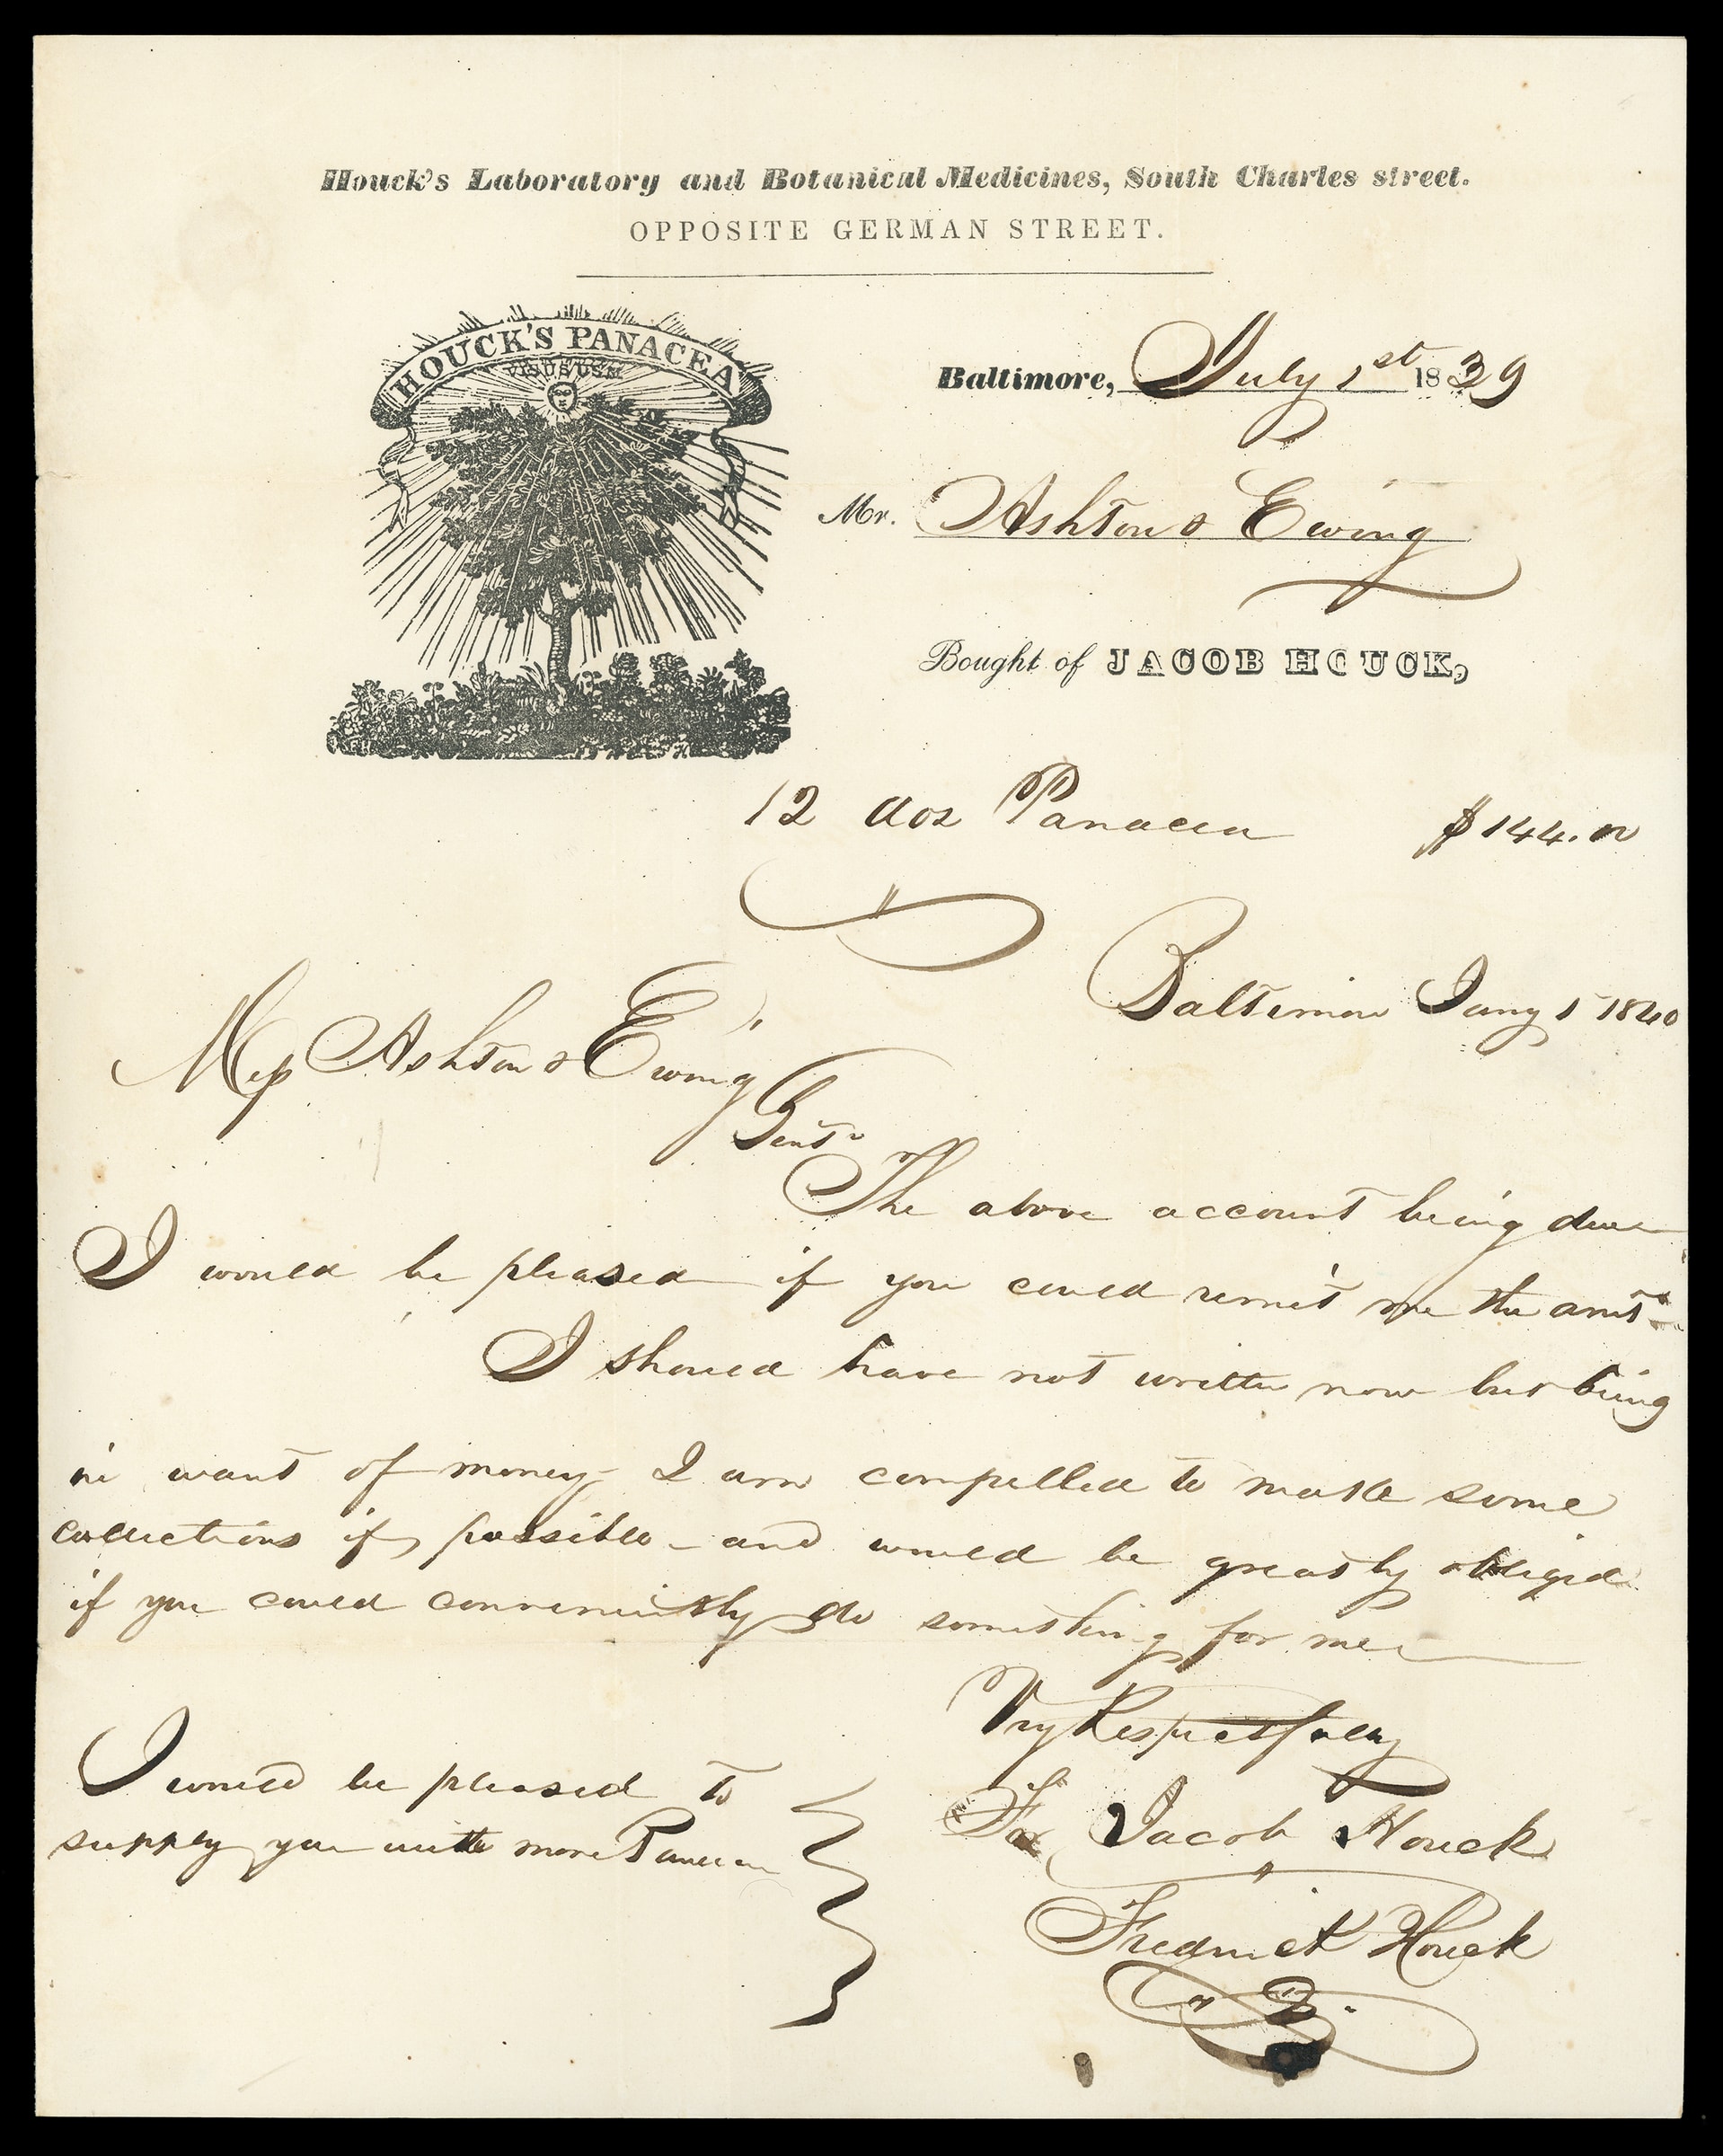 Houck's Laboratory and Botanical Medicines, South Charles street.
OPPOSITE GERMAN STREET.
HOUCK'S PANACEA
Baltimore, July 1st 1839
Mr. Ashton & Ewing
Bought of JACOB HOUCK,
12 doz Panacea $144.00
Baltimore Jany 1 1840
Mess Ashton & Ewing
Gents
The above account being due
I would be pleased if you could remit me the amt
I should have not written now but being
in want of money I am compelled to make some
collections if possible - and would be greatly obliged
if you could conveniently do something for me
Vry Respectfully
For Jacob Houck
Fredrick Houck
I would be pleased to
supply you with more Panacea